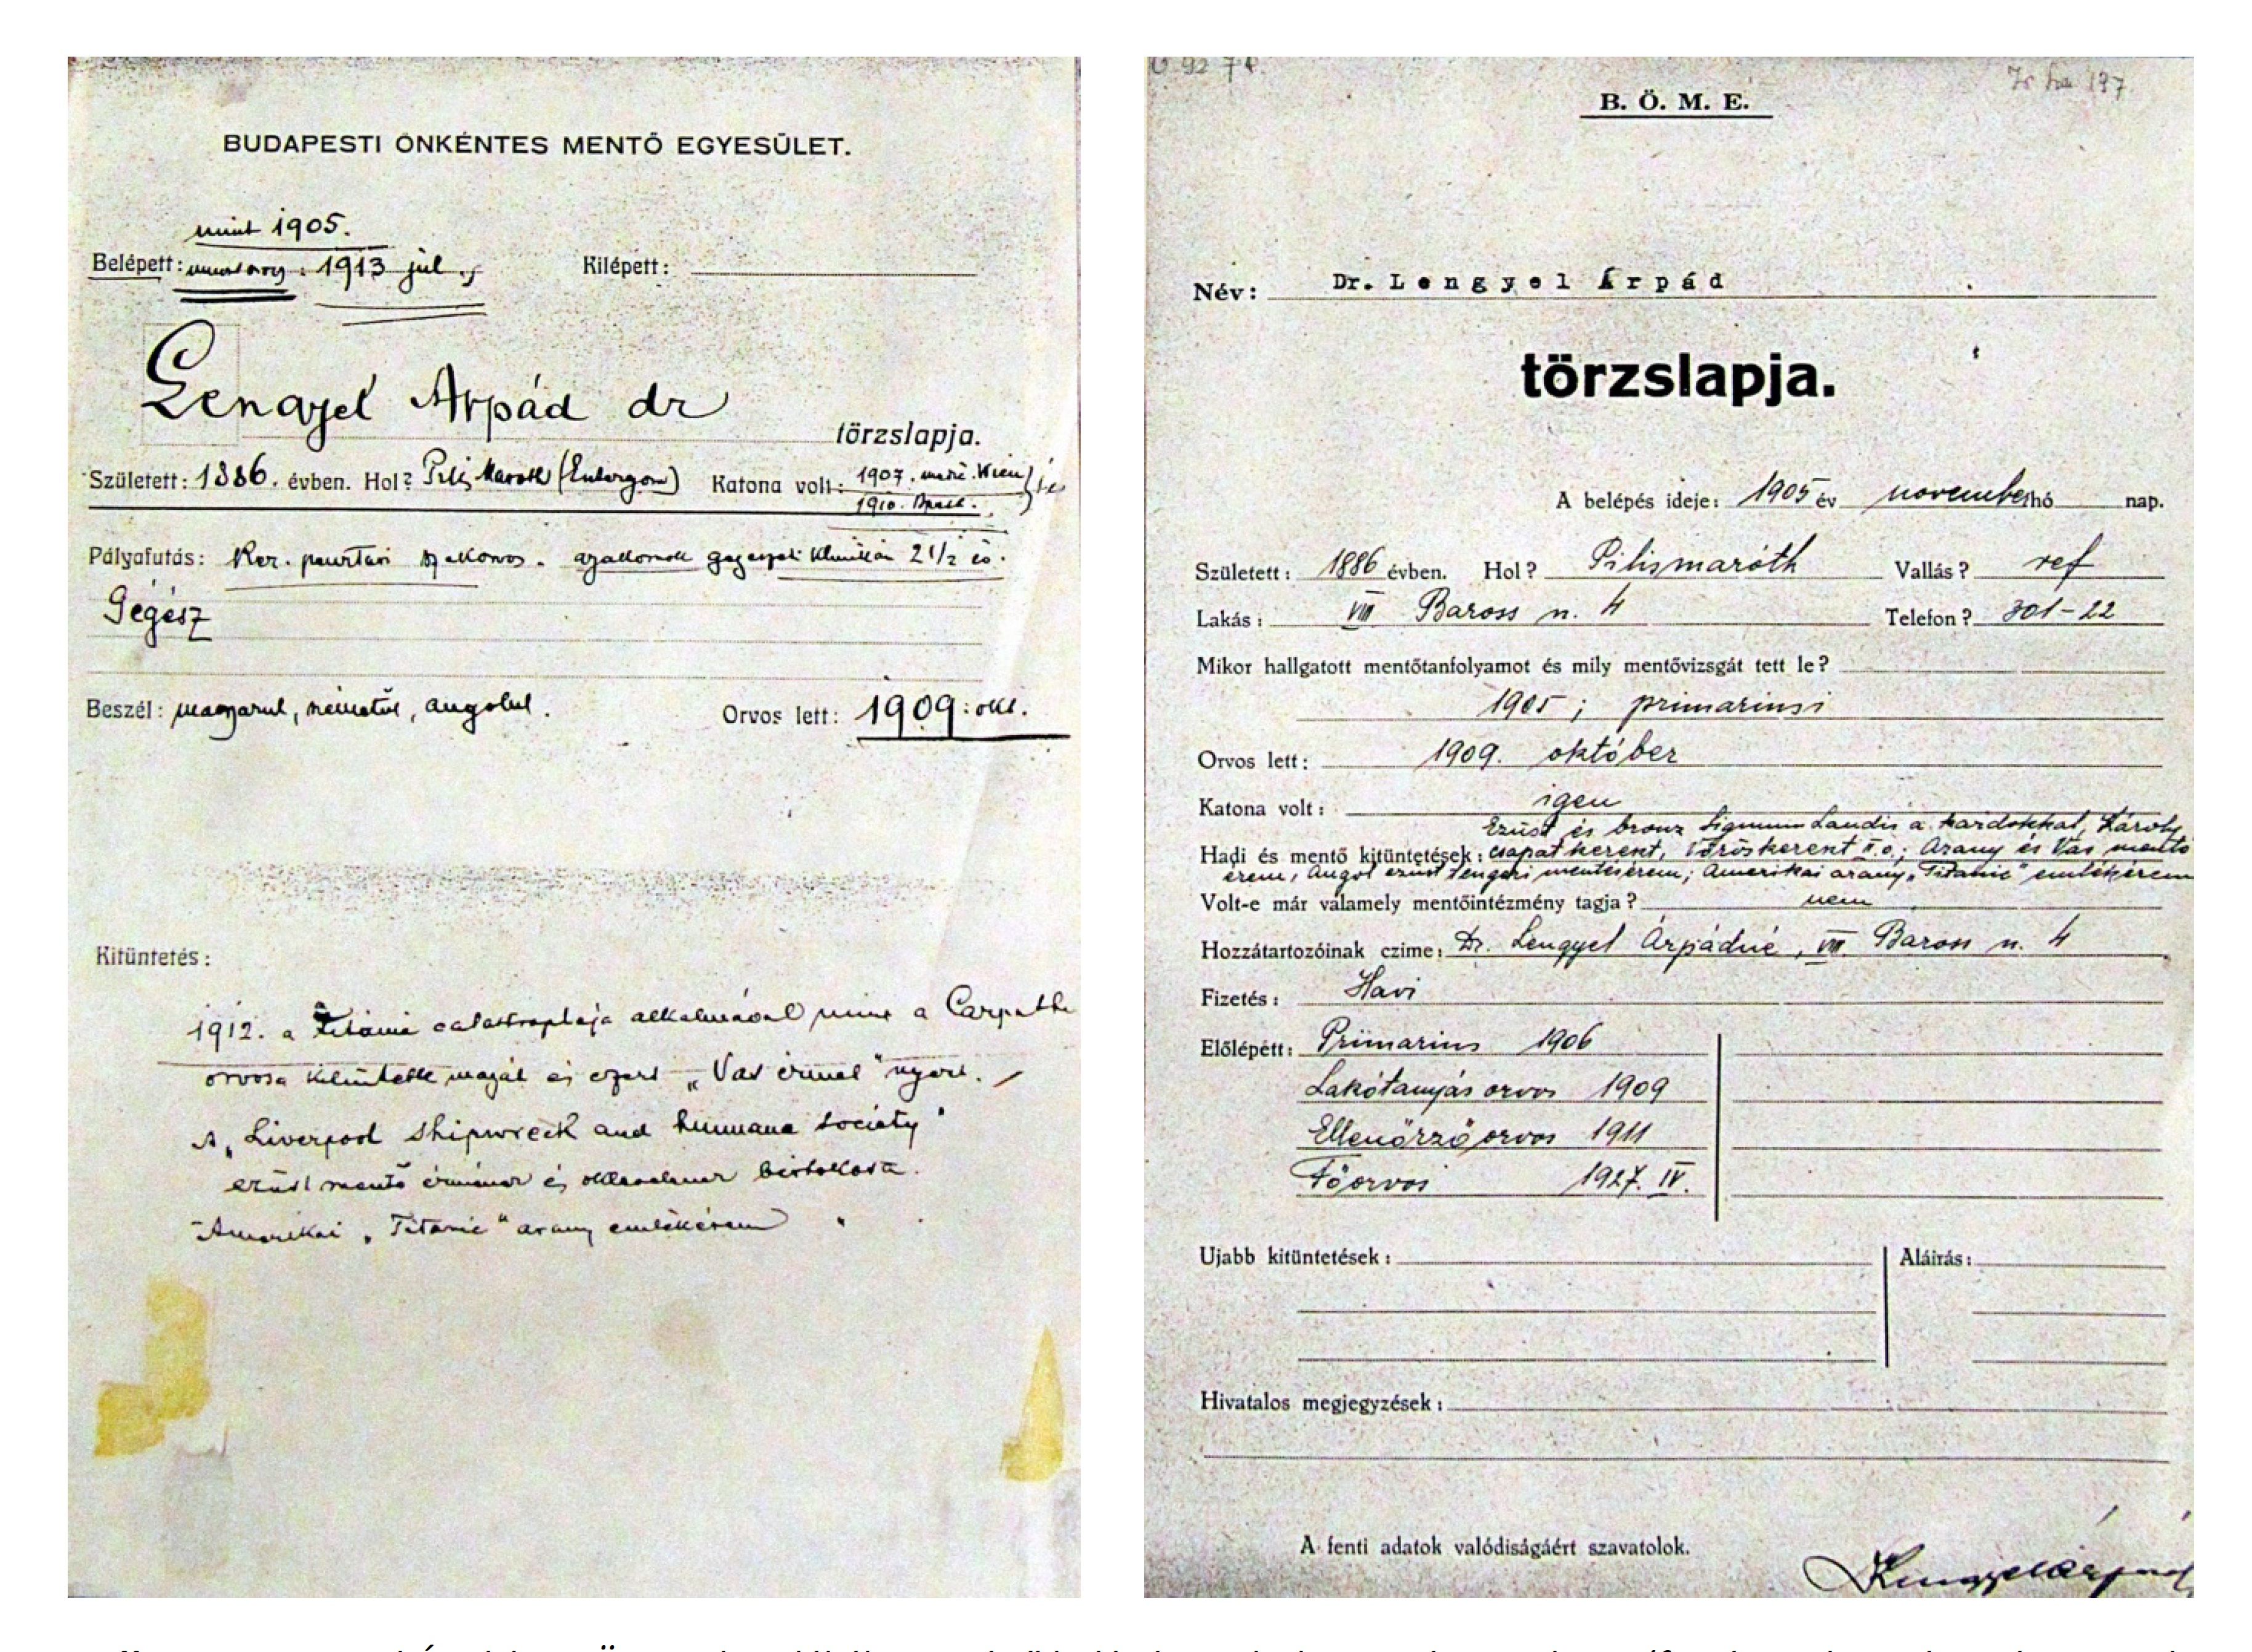 BUDAPESTI ÖNKÉNTES MENTŐ EGYESÜLET.
mint 1905.
Belépett: 1913 jul.
Kilépett:
Lengyel Árpád dr
törzslapja.
Született: 1886. évben. Hol? Pilis Maroth (Esztergom) Katona volt: 1907. Wien
1910. Bpest.
Pályafutás: Ker. gégészeti klinikán 2 1/2 év.
Gégész
Beszél: magyarul, németül, angolul. Orvos lett: 1909. okt.
Kitüntetés:
1912. a Titanic catastrophája alkalmával mint a Carpathia
orvosa kitüntette magát és ezért „Vas érmet" nyert.
A „Liverpool shipwreck and humane society"
ezüst mentő érmének és oklevelének birtokosa.
Amerikai „Titanic" arany emlékérem "
B. Ö. M. E.
Név: Dr. Lengyel Árpád
törzslapja.
A belépés ideje: 1905 év november hó nap.
Született: 1886 évben. Hol? Pilismaróth Vallás? ref
Lakás: VIII. Baross u. 4 Telefon? 301-22
Mikor hallgatott mentőtanfolyamot és mily mentővizsgát tett le?
1905; primariusi
Orvos lett: 1909. október
Katona volt: igen
Ezüst és bronz Signum Laudis a kardokkal, Károly
Hadi és mentő kitüntetések: csapatkereszt, Vöröskereszt II. o.; Arany és Vas mentő
érem, Angol ezüst tengeri mentésérem; Amerikai arany „Titanic" emlékérem
Volt-e már valamely mentőintézmény tagja? nem
Hozzátartozóinak czime: Dr. Lengyel Árpádné, VIII. Baross u. 4
Fizetés: Havi
Előlépett: Primarius 1906
Lakótanyás orvos 1909
Ellenőrző orvos 1911
Főorvos 1927. IV.
Ujabb kitüntetések: Aláirás:
Hivatalos megjegyzések:
A fenti adatok valódiságáért szavatolok.
Lengyel Árpád